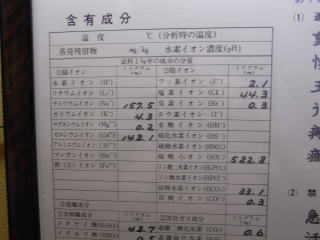 含有成分
温度 ℃(分析時の温度)
蒸発残留物 mg/kg 水素イオン濃度(pH)
試料1kg中の成分の分量
(1)陽イオン ミリグラム(mg) (2)陰イオン ミリグラム(mg)
水素イオン(H⁺) フッ素イオン(F⁻) 2.1
リチウムイオン(Li⁺) 塩素イオン(Cl⁻) 44.3
ナトリウムイオン(Na⁺) 157.5 臭素イオン(Br⁻) 0.3
カリウムイオン(K⁺) 4.3 ヨウ素イオン(I⁻)
マグネシウムイオン(Mg²⁺) 0.2 水酸イオン(OH⁻)
カルシウムイオン(Ca²⁺) 148.1 硫化水素イオン(HS⁻)
アルミニウムイオン(Al³⁺) 硫酸水素イオン(HSO₄⁻)
マンガンイオン(Mn²⁺) 硫酸イオン(SO₄²⁻) 582.8
鉄(Ⅱ)イオン(Fe²⁺)
炭酸水素イオン(HCO₃⁻) 33.1
炭酸イオン(CO₃²⁻) 0.3
(3)遊離成分
①非解離成分 ミリグラム(mg) ②溶存ガス成分 ミリグラム(mg)
メタケイ酸(H₂SiO₃) 42.7 遊離二酸化炭素(CO₂) 0.6
メタホウ酸 0.5
(1)
(2) 禁